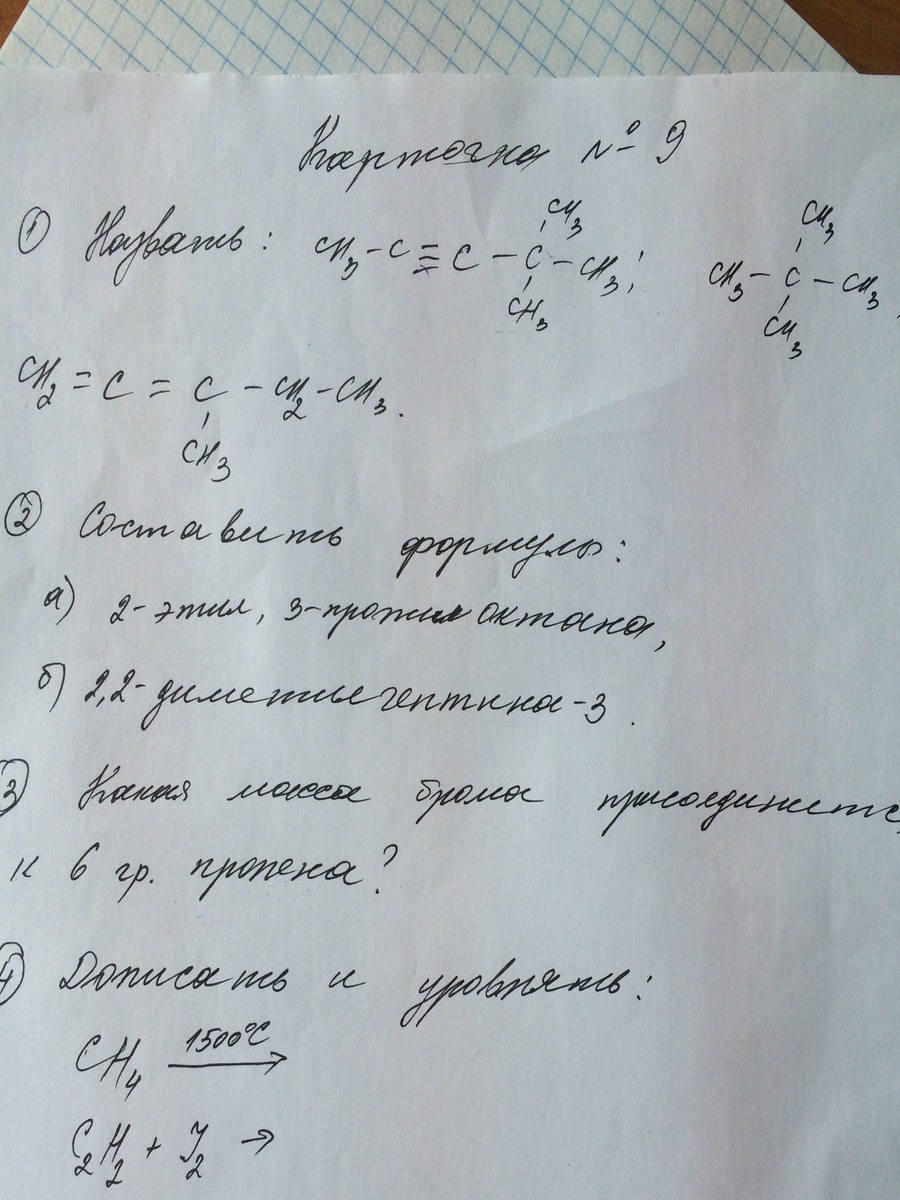 Карточка № 9
① Назвать: CH3 – C ≡ C – C(CH3)(CH3) – CH3; CH3 – C(CH3)(CH3) – CH3,
CH2 = C = C(CH3) – CH2 – CH3.
② Составить формулы:
а) 2-этил, 3-пропил октана,
б) 2,2-диметилгептина-3.
③ Какая масса брома присоединится
к 6 гр. пропена?
④ Дописать и уровнять:
CH4 1500°C →
C2H2 + J2 →